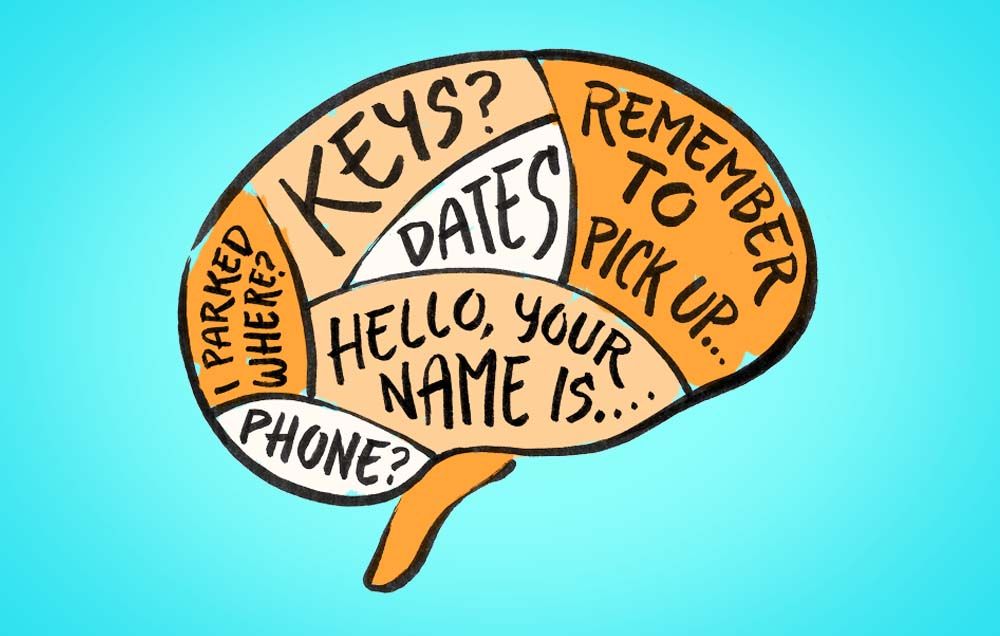 KEYS?
DATES
REMEMBER
TO
PICK UP...
I PARKED
WHERE?
HELLO, YOUR
NAME IS....
PHONE?